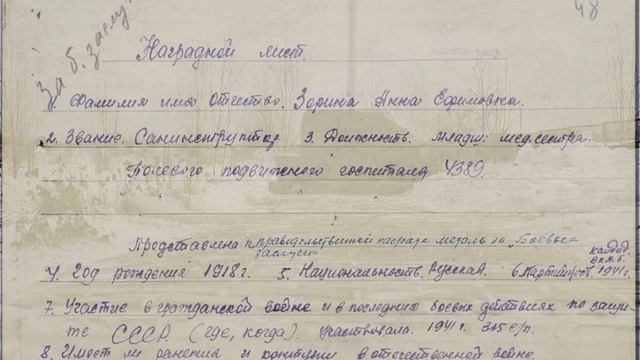 48
За б. заслу
Наградной лист.
1. Фамилия имя Отчество. Зорина Анна Ефимовна.
2. Звание. Санинструктор 3. Должность. младш: мед.сестра.
Полевого подвижного госпиталя 4389.
Представлена к правительственной награде медаль за "Боевые
заслуги"
4. Год рождения 1918 г. 5. Национальность. Русская. 6. Партийност. кандид. 1941 г.
7. Участие в гражданской войне и в последних боевых действиях по защи
те СССР (где, когда) участвовала. 1941 г.
8. Имеет ли ранения и контузии в отечественной войне